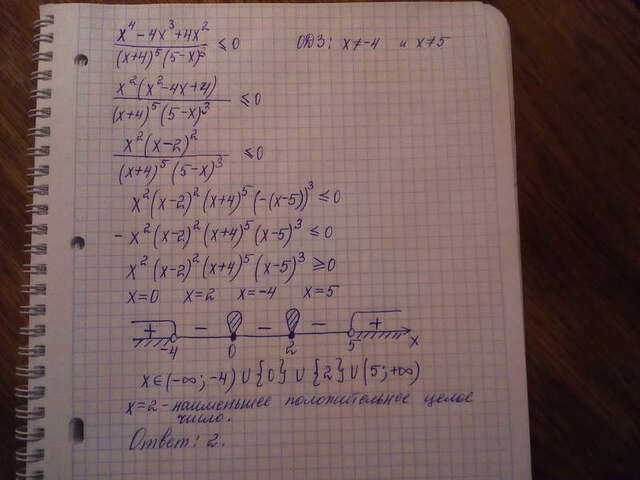 x⁴ - 4x³ + 4x² / (x+4)⁵ (5-x)³ ≤ 0 ОДЗ: x ≠ -4 и x ≠ 5
x² (x² - 4x + 4) / (x+4)⁵ (5-x)³ ≤ 0
x² (x-2)² / (x+4)⁵ (5-x)³ ≤ 0
x² (x-2)² (x+4)⁵ (-(x-5))³ ≤ 0
- x² (x-2)² (x+4)⁵ (x-5)³ ≤ 0
x² (x-2)² (x+4)⁵ (x-5)³ ≥ 0
x=0 x=2 x=-4 x=5
+ - - - +
-4 0 2 5 x
x∈(-∞; -4) ∪ {0} ∪ {2} ∪ (5; +∞)
x=2 - наименьшее положительное целое
число.
Ответ: 2.